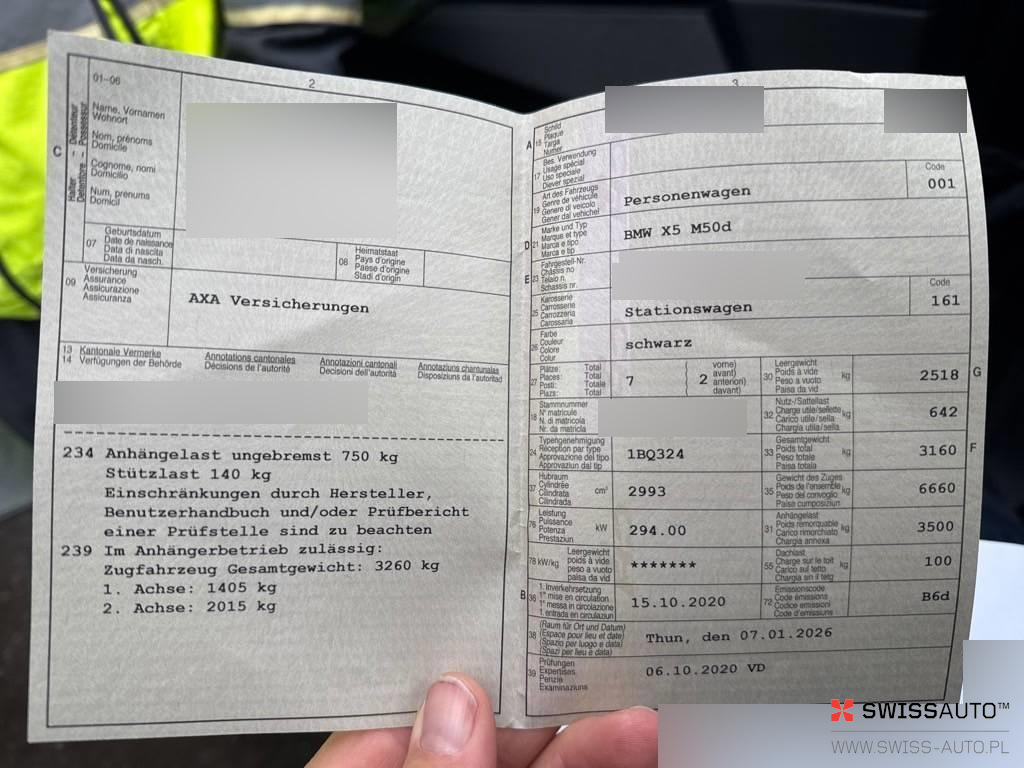 2
01-06
Name, Vornamen
Wohnort
Nom, prénoms
Domicile
Cognome, nomi
Domicilio
Num, prenums
Domicil
C
Halter - Détenteur
Detentore - Possessur
07
Geburtsdatum
Date de naissance
Data di nascita
Data da nasch.
08
Heimatstaat
Pays d'origine
Paese d'origine
Stadi d'origin
09
Versicherung
Assurance
Assicurazione
Assicuranza
AXA Versicherungen
13 Kantonale Vermerke
14 Verfügungen der Behörde
Annotations cantonales
Décisions de l'autorité
Annotazioni cantonali
Decisioni dell'autorità
Annotaziuns chantunalas
Disposiziuns da l'autoritad
234 Anhängelast ungebremst 750 kg
Stützlast 140 kg
Einschränkungen durch Hersteller,
Benutzerhandbuch und/oder Prüfbericht
einer Prüfstelle sind zu beachten
239 Im Anhängerbetrieb zulässig:
Zugfahrzeug Gesamtgewicht: 3260 kg
1. Achse: 1405 kg
2. Achse: 2015 kg
3
A 15
Schild
Plaque
Targa
Numer
17
Bes. Verwendung
Usage spécial
Uso speciale
Diever spezial
19
Art des Fahrzeugs
Genre de véhicule
Genere di veicolo
Gener dal vehichel
Personenwagen
Code
001
D 21
Marke und Typ
Marque et type
Marca e tipo
Marca e tip
BMW X5 M50d
E 23
Fahrgestell-Nr.
Châssis no
Telaio n.
Schassis nr.
25
Karosserie
Carrosserie
Carrozzeria
Carossaria
Stationswagen
Code
161
26
Farbe
Couleur
Colore
Colur
schwarz
27
Plätze: Total
Places: Total
Posti: Totale
Plazs: Total
7
2
vorne)
avant)
anteriori)
davant)
30
Leergewicht
Poids à vide
Peso a vuoto
Paisa da vid
kg
2518
G
18
Stammnummer
N° matricule
N. di matricola
Nr. da matricla
32
Nutz-/Sattellast
Charge utile/sellette
Carico utile/sella
Chargia utila/sella
kg
642
24
Typengenehmigung
Réception par type
Approvazione del tipo
Approvaziun dal tip
1BQ324
33
Gesamtgewicht
Poids total
Peso totale
Paisa totala
kg
3160
F
37
Hubraum
Cylindrée
Cilindrata
Cilindrada
cm³
2993
35
Gewicht des Zuges
Poids de l'ensemble
Peso del convoglio
Paisa cumposiziun
kg
6660
76
Leistung
Puissance
Potenza
Prestaziun
kW
294.00
31
Anhängelast
Poids remorquable
Carico rimorchiato
Chargia annexa
kg
3500
78 kW/kg
Leergewicht
poids à vide
peso a vuoto
paisa da vid
*******
55
Dachlast
Charge sur le toit
Carico sul tetto
Chargia sin il tetg
kg
100
B 36
1. Inverkehrsetzung
1re mise en circulation
1a messa in circolazione
1. entrada en circulaziun
15.10.2020
72
Emissionscode
Code émissions
Codice emissioni
Code d'emissiuns
B6d
38
(Raum für Ort und Datum)
(Espace pour lieu et date)
(Spazio per luogo e data)
(Spazi per lieu e data)
Thun, den 07.01.2026
39
Prüfungen
Expertises
Perizie
Examinaziuns
06.10.2020 VD
SWISSAUTO™
WWW.SWISS-AUTO.PL